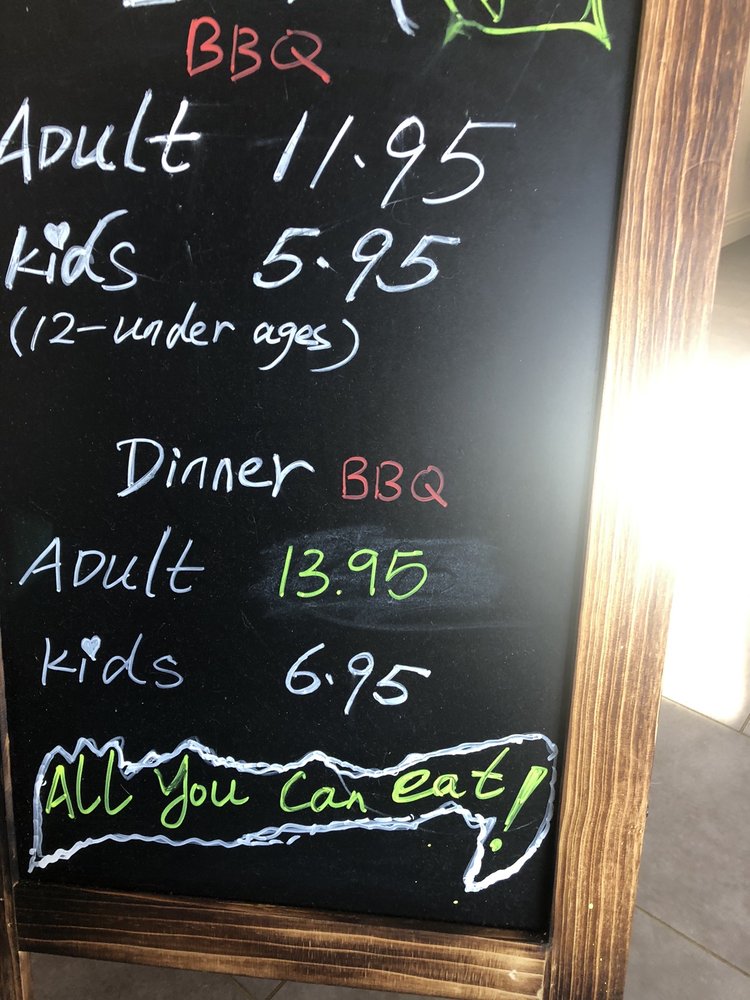 BBQ
ADult 11.95
kids 5.95
(12-under ages)
Dinner BBQ
ADult 13.95
kids 6.95
All You can eat!